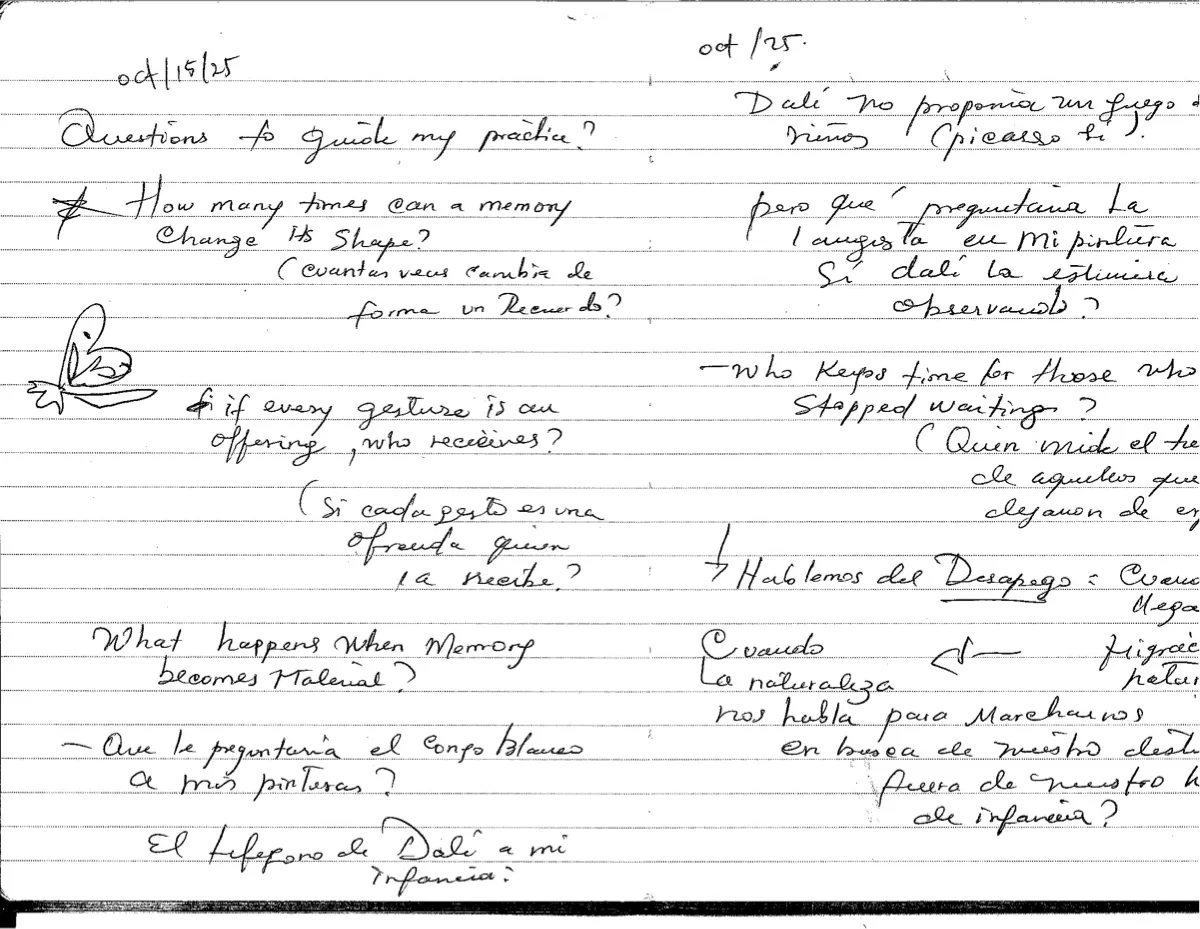 oct/15/25
Questions to guide my practice?
How many times can a memory
Change its Shape?
(cuantas veces cambia de
forma un Recuerdo?
if every gesture is an
offering, who receives?
(Si cada gesto es una
ofrenda quien
la recibe?
What happens when Memory
becomes Material?
- Que le preguntaria el Congo Blanco
a mis pinturas?
El telefono de Dalí a mi
infancia:
oct /25.
Dalí no proponia un juego
niños (picasso si).
pero qué preguntaria La
langosta en mi pintura
Si dalí la estuviera
observando?
- who Keeps time for those who
Stopped waiting?
(Quien mide el
de aquellos que
dejaron de
Hablemos del Desapego:
Cuando
La naturaleza
nos habla para Marcharnos
en busca de nuestro
fuera de nuestro
de infancia?